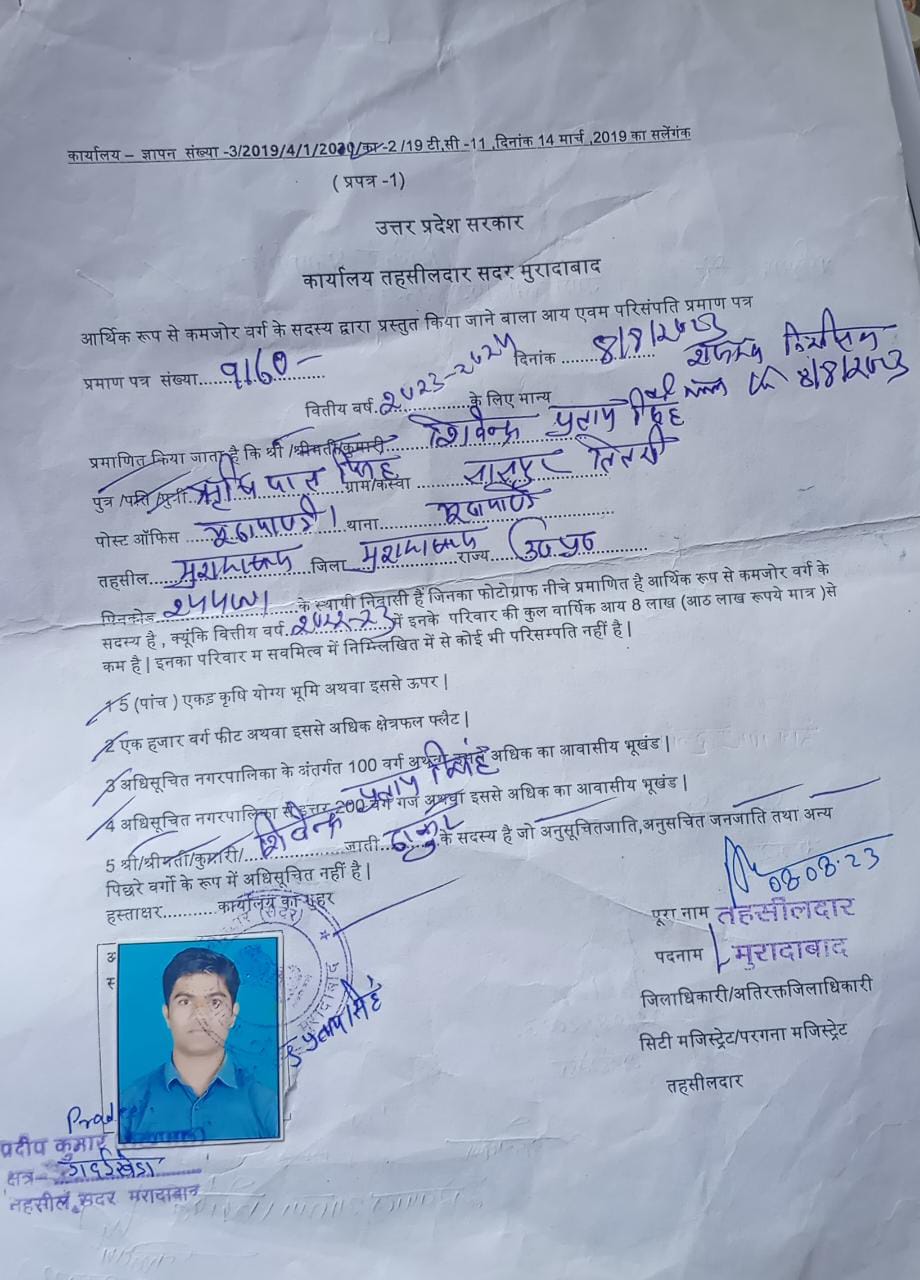 कार्यालय – ज्ञापन संख्या -3/2019/4/1/2020/का-2 /19 टी.सी -11 ,दिनांक 14 मार्च ,2019 का सलेंगंक
( प्रपत्र -1)
उत्तर प्रदेश सरकार
कार्यालय तहसीलदार सदर मुरादाबाद
आर्थिक रूप से कमजोर वर्ग के सदस्य द्वारा प्रस्तुत किया जाने बाला आय एवम परिसंपति प्रमाण पत्र
प्रमाण पत्र संख्या.....9160 दिनांक .......8/8/2023
वितीय वर्ष.2023-2024 के लिए मान्य 8/8/2023
प्रमाणित किया जाता है कि श्री /श्रीमती/कुमारी..... शिवेन्द्र प्रताप सिंह
पुत्र /पति /पुत्री..ऋषिपाल सिंह ग्राम/कस्वा
पोस्ट ऑफिस ....मूढापाण्डे थाना.....मूढापाण्डे
तहसील....मुरादाबाद .जिला मुरादाबाद राज्य.... उ०प्र०
पिनकोड के स्थायी निवासी हैं जिनका फोटोग्राफ नीचे प्रमाणित है आर्थिक रूप से कमजोर वर्ग के
सदस्य है , क्यूंकि वित्तीय वर्ष.2022-23 में इनके परिवार की कुल वार्षिक आय 8 लाख (आठ लाख रूपये मात्र )से
कम है | इनका परिवार म सवमित्व में निम्लिखित में से कोई भी परिसम्पति नहीं है |
1 5 (पांच ) एकड़ कृषि योग्य भूमि अथवा इससे ऊपर |
2 एक हजार वर्ग फीट अथवा इससे अधिक क्षेत्रफल फ्लैट |
3 अधिसूचित नगरपालिका के अंतर्गत 100 वर्ग अथवा इससे अधिक का आवासीय भूखंड |
4 अधिसूचित नगरपालिका से इत्तर 200 वर्ग गज अथवा इससे अधिक का आवासीय भूखंड |
5 श्री/श्रीमती/कुमारी/ शिवेन्द्र प्रताप सिंह जाती..ठाकुर.के सदस्य है जो अनुसूचितजाति,अनुसचित जनजाति तथा अन्य
पिछरे वर्गो के रूप में अधिसूचित नहीं है |
हस्ताक्षर...........कार्यालय का मुहर
08.08.23
पूरा नाम तहसीलदार
पदनाम मुरादाबाद
जिलाधिकारी/अतिरक्तजिलाधिकारी
सिटी मजिस्ट्रेट/परगना मजिस्ट्रेट
तहसीलदार
(सदर)
मुरादाबाद
प्रताप सिंह
प्रदीप कुमार
क्षत्र–
तहसील सदर मरादाबाद